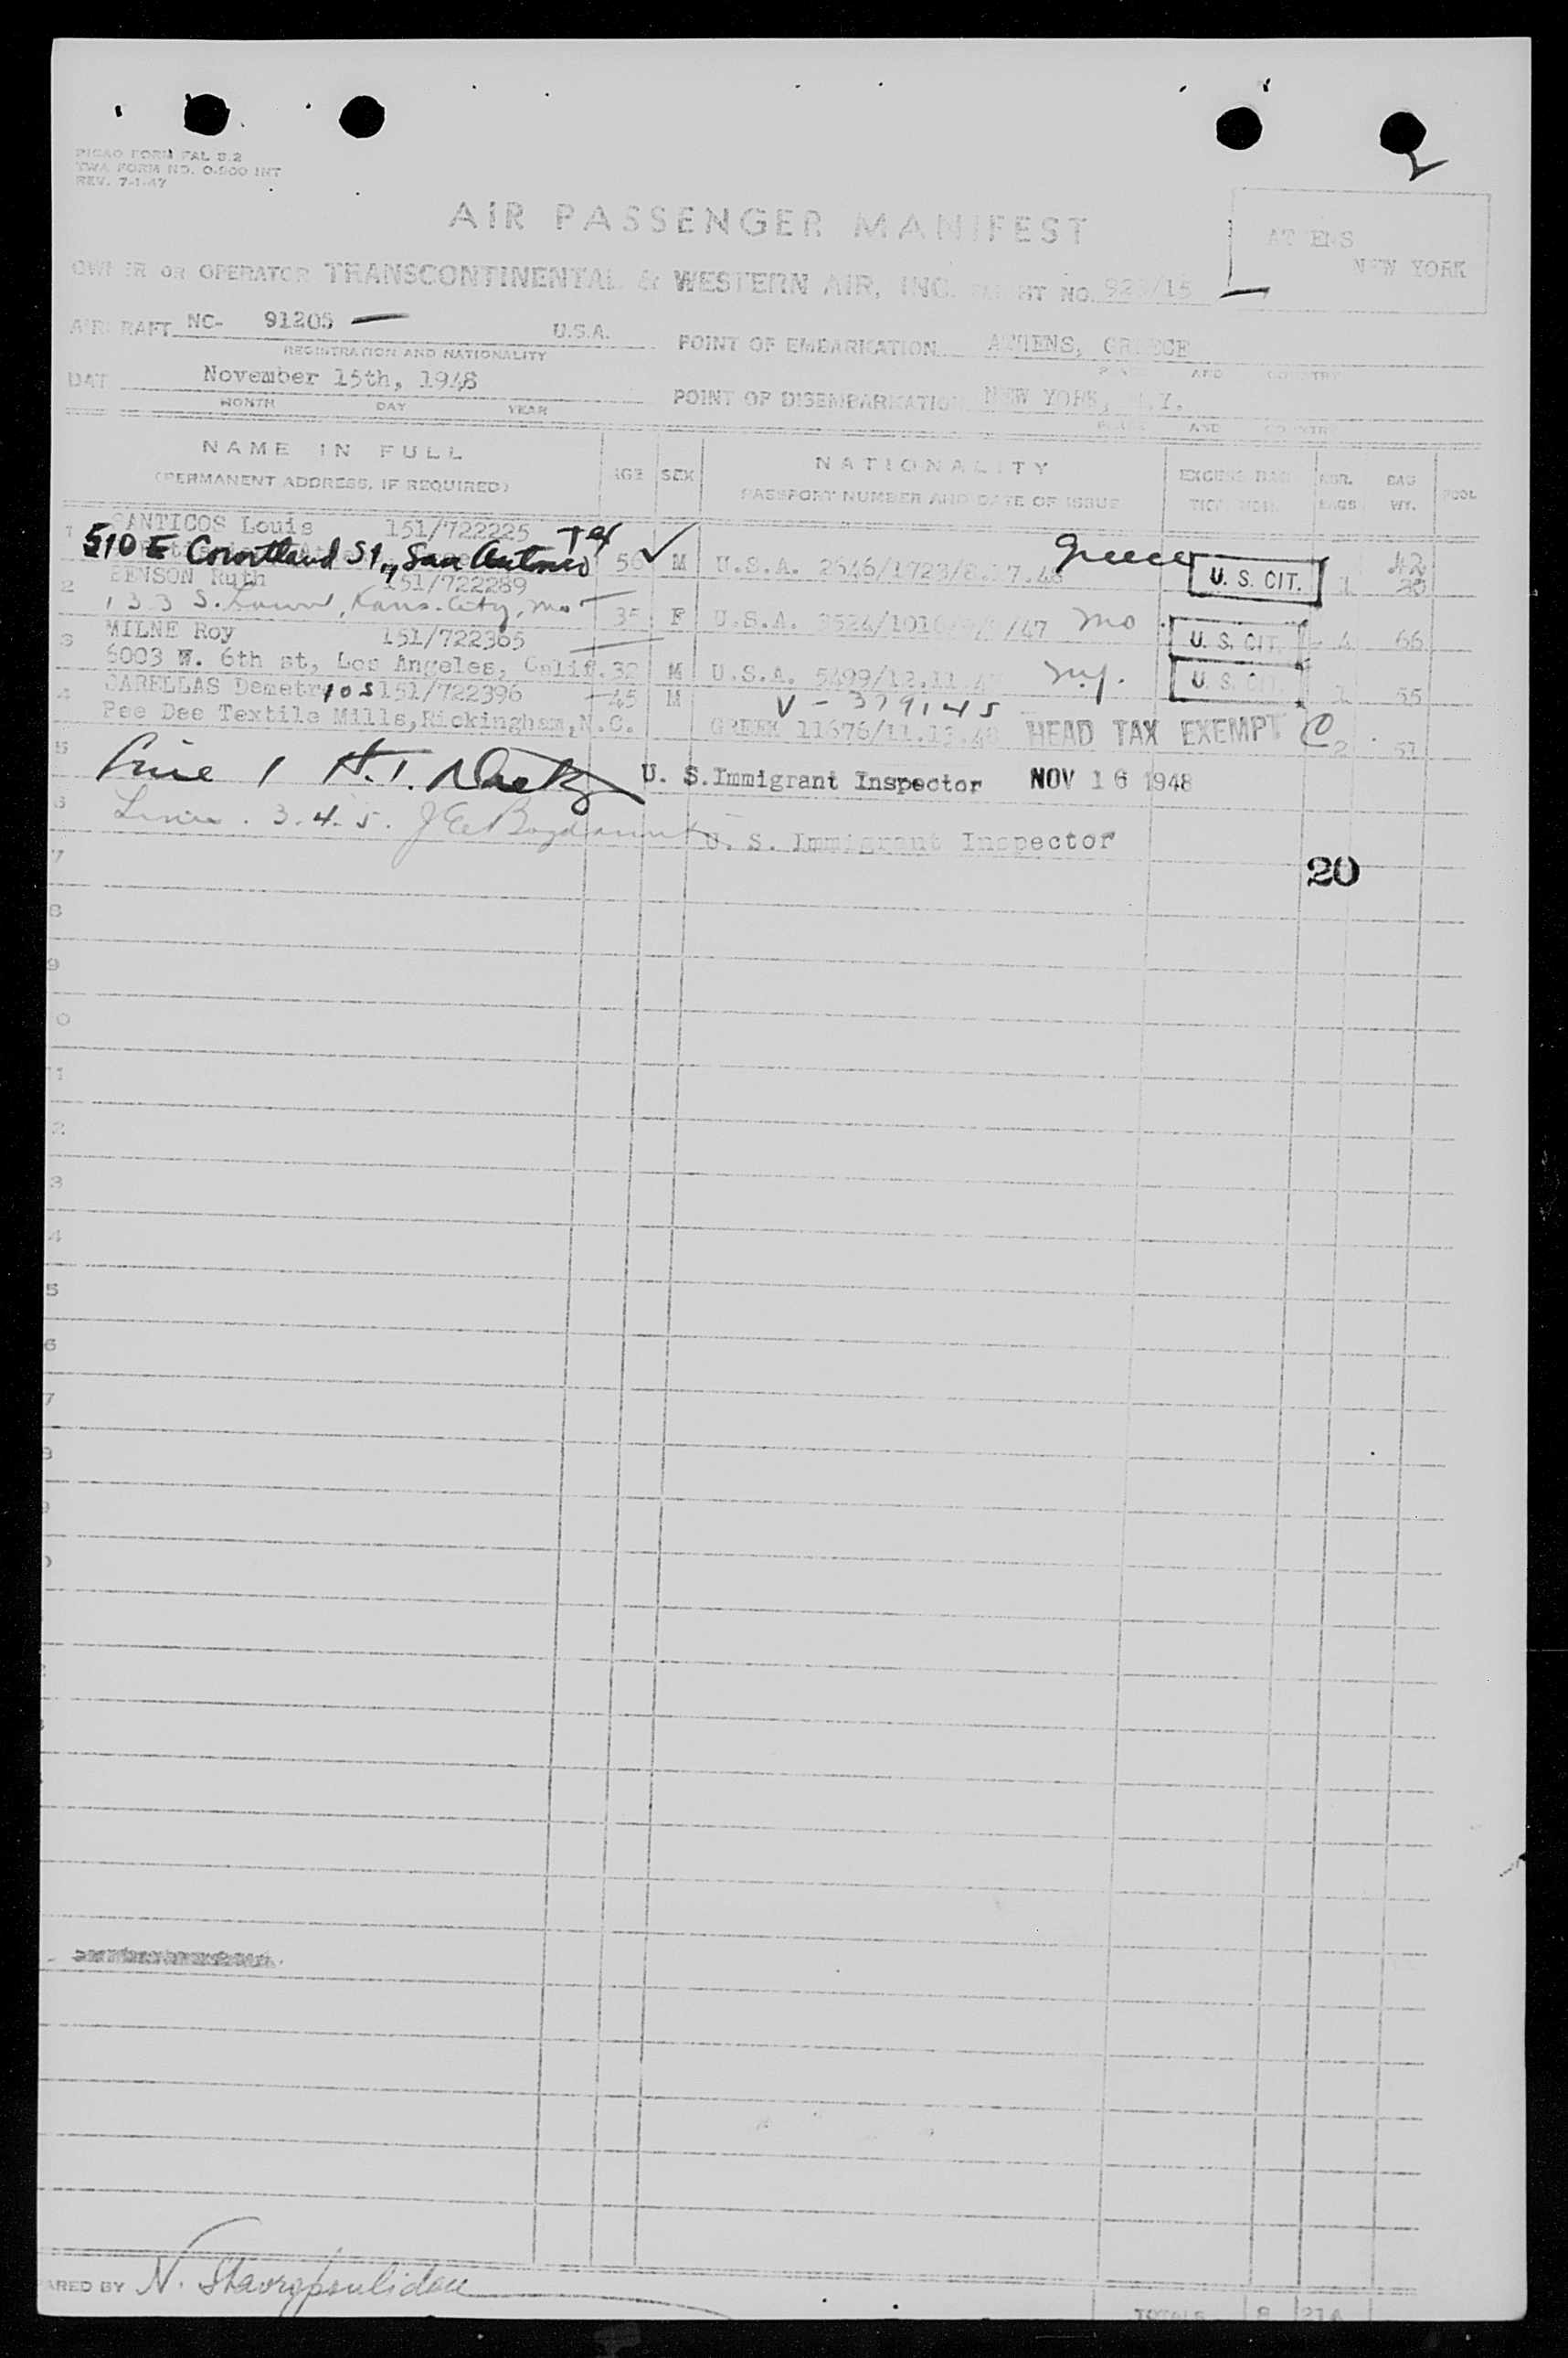 PICAO FORM FAL 8.2
TWA FORM NO. O-900 INT
REV. 7-1-47
AIR PASSENGER MANIFEST
ATHENS
NEW YORK
OWNER OR OPERATOR TRANSCONTINENTAL & WESTERN AIR, INC. FLIGHT NO.
AIRCRAFT NC- 91205 U.S.A.
REGISTRATION AND NATIONALITY
POINT OF EMBARKATION ATHENS, GREECE
PLACE AND COUNTRY
DATE November 15th, 1948
MONTH DAY YEAR
POINT OF DISEMBARKATION NEW YORK, N.Y.
PLACE AND COUNTRY
NAME IN FULL
(PERMANENT ADDRESS, IF REQUIRED)
AGE SEX
NATIONALITY
PASSPORT NUMBER AND DATE OF ISSUE
EXCESS BAG
NBR. BAGS
BAG WT.
POOL
1 SANTICOS Louis 151/722225 Tex
510 E Courtland St., San Antonio 56 M U.S.A. 2646/1723/8.17.48 Greece U. S. CIT. 1 42
2 BENSON Ruth 151/722289
133 S. Kans. City, Mo 35 F U.S.A. Mo U. S. CIT. 4 66
3 MILNE Roy 151/722365
6003 W. 6th st, Los Angeles, Calif. 32 M U.S.A. 5499/12.11.47 N.Y. U. S. CIT. 1 55
4 SARELLAS Demetrios 151/722396 45 M V-379145
Pee Dee Textile Mills, Rickingham, N.C. GREEK 11676/11.13.48 HEAD TAX EXEMPT C 2 51
5 Line 1 H.I. U. S. Immigrant Inspector NOV 16 1948
6 Lines. 3.4.5. U. S. Immigrant Inspector
7
20
8
9
0
1
2
3
4
5
6
7
ARED BY N. Stavropoulidou
TOTALS 8 214